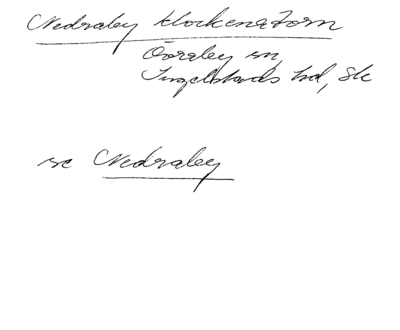 Nedraby klockenatorn
Övraby sn,
Ingelstads hd, Sk
se Nedraby